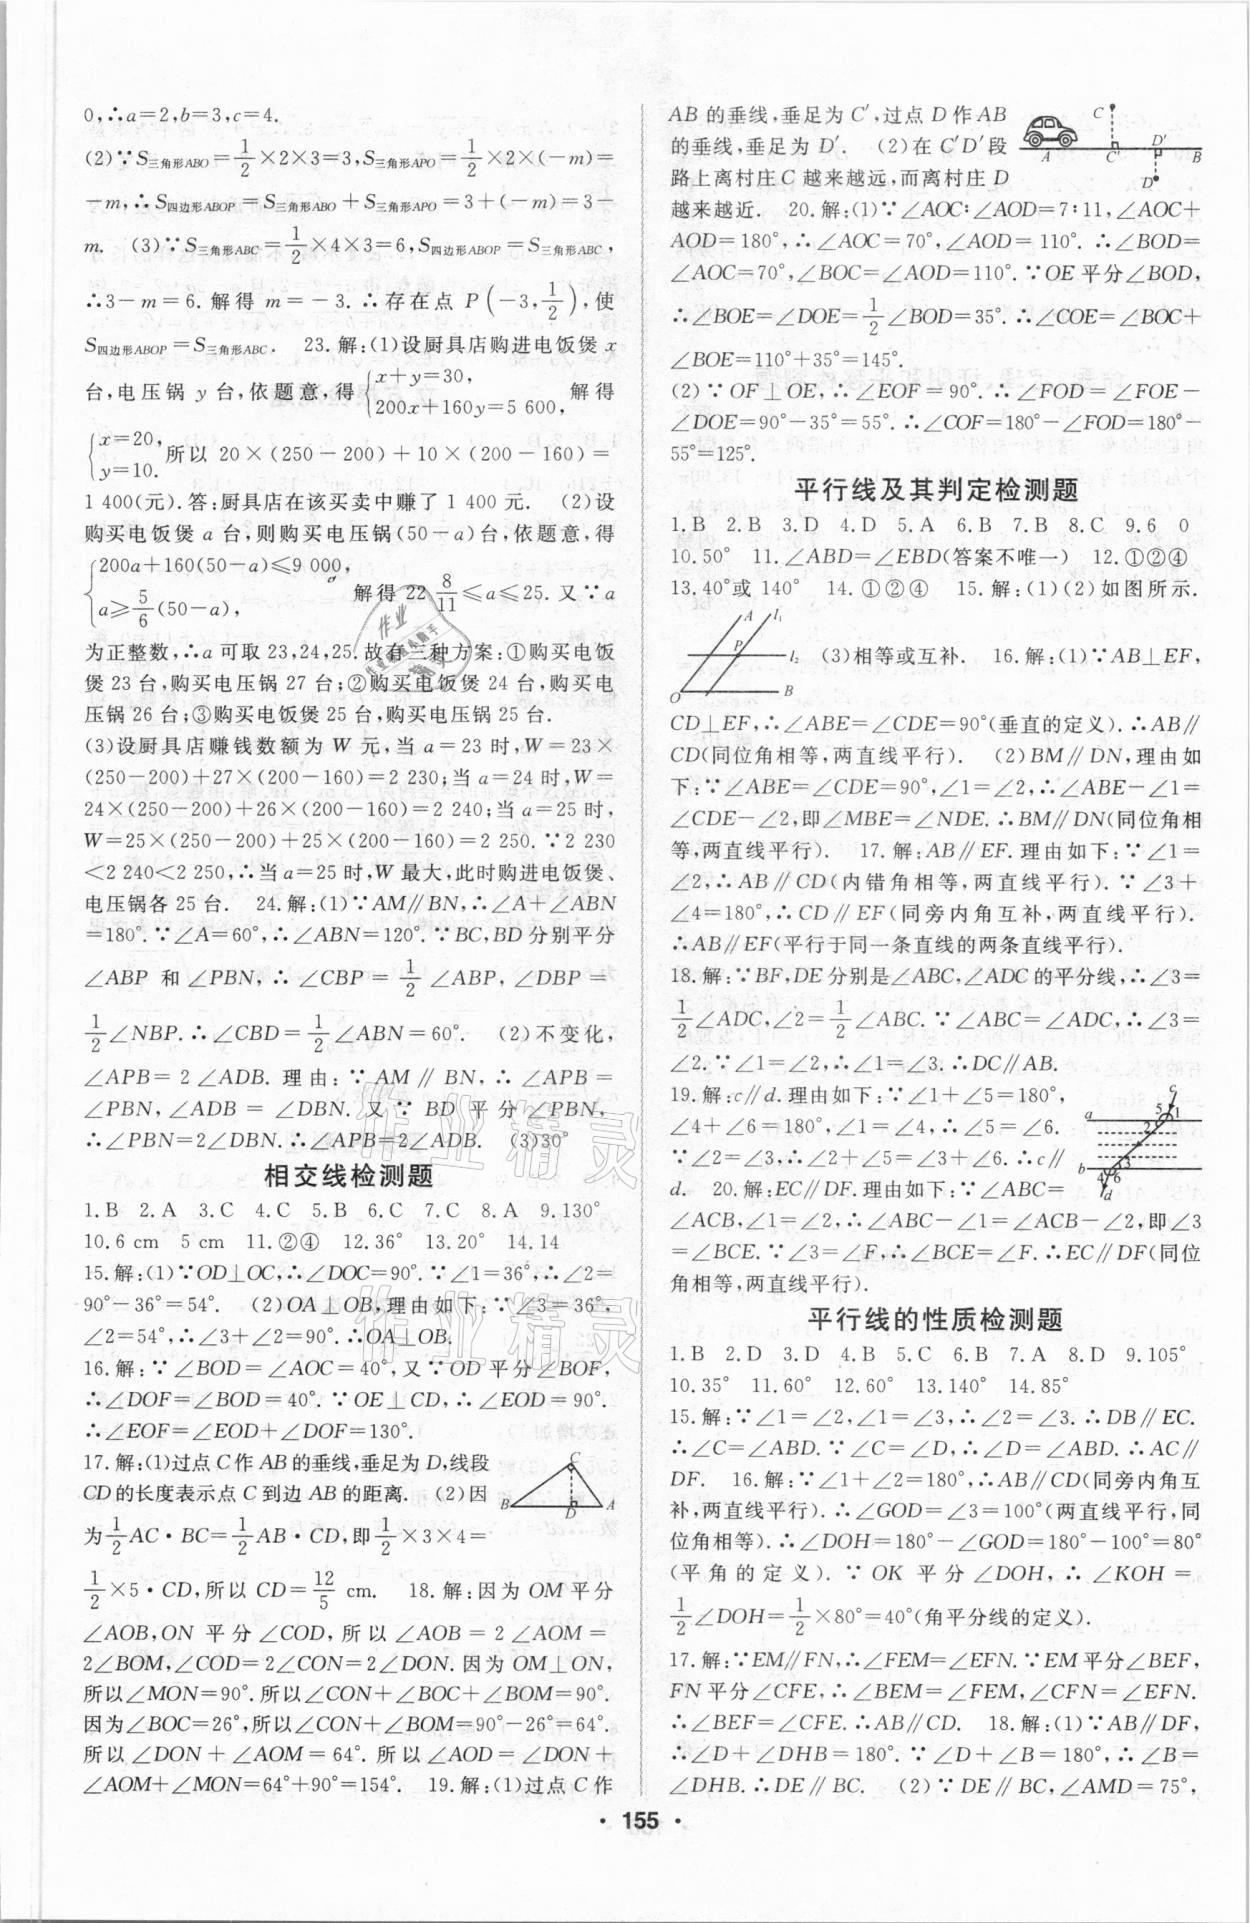 0,∴a=2,b=3,c=4.
(2)∵S三角形ABO=1/2×2×3=3,S三角形APO=1/2×2×(-m)=
-m,∴S四边形ABOP=S三角形ABO+S三角形APO=3+(-m)=3-
m. (3)∵S三角形ABC=1/2×4×3=6,S四边形ABOP=S三角形ABC,
∴3-m=6.解得 m=-3.∴存在点 P(-3,1/2),使
S四边形ABOP=S三角形ABC. 23.解:(1)设厨具店购进电饭煲 x
台,电压锅 y 台,依题意,得{x+y=30, 200x+160y=5 600,解得
{x=20, y=10.所以 20×(250-200)+10×(200-160)=
1 400(元).答:厨具店在该买卖中赚了 1 400 元. (2)设
购买电饭煲 a 台,则购买电压锅(50-a)台,依题意,得
{200a+160(50-a)≤9 000, a≥5/6(50-a), 解得 22 8/11≤a≤25.又∵a
为正整数,∴a 可取 23,24,25.故有三种方案:①购买电饭
煲 23 台,购买电压锅 27 台;②购买电饭煲 24 台,购买电
压锅 26 台;③购买电饭煲 25 台,购买电压锅 25 台.
(3)设厨具店赚钱数额为 W 元,当 a=23 时,W=23×
(250-200)+27×(200-160)=2 230;当 a=24 时,W=
24×(250-200)+26×(200-160)=2 240;当 a=25 时,
W=25×(250-200)+25×(200-160)=2 250.∵2 230
<2 240<2 250,∴当 a=25 时,W 最大,此时购进电饭煲、
电压锅各 25 台. 24.解:(1)∵AM∥BN,∴∠A+∠ABN
=180°.∵∠A=60°,∴∠ABN=120°.∵BC,BD 分别平分
∠ABP 和∠PBN,∴∠CBP=1/2∠ABP,∠DBP=
1/2∠NBP.∴∠CBD=1/2∠ABN=60°. (2)不变化,
∠APB=2∠ADB.理由:∵AM∥BN,∴∠APB=
∠PBN,∠ADB=∠DBN.又∵BD 平分∠PBN,
∴∠PBN=2∠DBN.∴∠APB=2∠ADB. (3)30°
相交线检测题
1.B 2.A 3.C 4.C 5.B 6.C 7.C 8.A 9.130°
10.6 cm 5 cm 11.②④ 12.36° 13.20° 14.14
15.解:(1)∵OD⊥OC,∴∠DOC=90°.∵∠1=36°,∴∠2=
90°-36°=54°. (2)OA⊥OB,理由如下:∵∠3=36°,
∠2=54°,∴∠3+∠2=90°.∴OA⊥OB.
16.解:∵∠BOD=∠AOC=40°,又∵OD 平分∠BOF,
∴∠DOF=∠BOD=40°.∵OE⊥CD,∴∠EOD=90°.
∴∠EOF=∠EOD+∠DOF=130°.
17.解:(1)过点 C 作 AB 的垂线,垂足为 D,线段
CD 的长度表示点 C 到边 AB 的距离. (2)因
C B D A
为1/2AC·BC=1/2AB·CD,即1/2×3×4=
1/2×5·CD,所以 CD=12/5 cm. 18.解:因为 OM 平分
∠AOB,ON 平分∠COD,所以∠AOB=2∠AOM=
2∠BOM,∠COD=2∠CON=2∠DON.因为 OM⊥ON,
所以∠MON=90°.所以∠CON+∠BOC+∠BOM=90°.
因为∠BOC=26°,所以∠CON+∠BOM=90°-26°=64°.
所以∠DON+∠AOM=64°.所以∠AOD=∠DON+
∠AOM+∠MON=64°+90°=154°. 19.解:(1)过点 C 作
AB 的垂线,垂足为 C′,过点 D 作 AB
的垂线,垂足为 D′. (2)在 C′D′段
路上离村庄 C 越来越远,而离村庄 D
C A C′ D′ B D
越来越近. 20.解:(1)∵∠AOC∶∠AOD=7∶11,∠AOC+
AOD=180°,∴∠AOC=70°,∠AOD=110°.∴∠BOD=
∠AOC=70°,∠BOC=∠AOD=110°.∵OE 平分∠BOD,
∴∠BOE=∠DOE=1/2∠BOD=35°.∴∠COE=∠BOC+
∠BOE=110°+35°=145°.
(2)∵OF⊥OE,∴∠EOF=90°.∴∠FOD=∠FOE-
∠DOE=90°-35°=55°.∴∠COF=180°-∠FOD=180°-
55°=125°.
平行线及其判定检测题
1.B 2.B 3.D 4.D 5.A 6.B 7.B 8.C 9.6 0
10.50° 11.∠ABD=∠EBD(答案不唯一) 12.①②④
13.40°或 140° 14.①②④ 15.解:(1)(2)如图所示.
A l1 P l2 O B
(3)相等或互补. 16.解:(1)∵AB⊥EF,
CD⊥EF,∴∠ABE=∠CDE=90°(垂直的定义).∴AB∥
CD(同位角相等,两直线平行). (2)BM∥DN,理由如
下:∵∠ABE=∠CDE=90°,∠1=∠2,∴∠ABE-∠1=
∠CDE-∠2,即∠MBE=∠NDE.∴BM∥DN(同位角相
等,两直线平行). 17.解:AB∥EF.理由如下:∵∠1=
∠2,∴AB∥CD(内错角相等,两直线平行).∵∠3+
∠4=180°,∴CD∥EF(同旁内角互补,两直线平行).
∴AB∥EF(平行于同一条直线的两条直线平行).
18.解:∵BF,DE 分别是∠ABC,∠ADC 的平分线,∴∠3=
1/2∠ADC,∠2=1/2∠ABC.∵∠ABC=∠ADC,∴∠3=
∠2.∵∠1=∠2,∴∠1=∠3.∴DC∥AB.
19.解:c∥d.理由如下:∵∠1+∠5=180°,
∠4+∠6=180°,∠1=∠4,∴∠5=∠6.
∵∠2=∠3,∴∠2+∠5=∠3+∠6.∴c∥
c 5 1 a 2 b 3 4 6 d
d. 20.解:EC∥DF.理由如下:∵∠ABC=
∠ACB,∠1=∠2,∴∠ABC-∠1=∠ACB-∠2,即∠3
=∠BCE.∵∠3=∠F,∴∠BCE=∠F.∴EC∥DF(同位
角相等,两直线平行).
平行线的性质检测题
1.B 2.D 3.D 4.B 5.C 6.B 7.A 8.D 9.105°
10.35° 11.60° 12.60° 13.140° 14.85°
15.解:∵∠1=∠2,∠1=∠3,∴∠2=∠3.∴DB∥EC.
∴∠C=∠ABD.∵∠C=∠D,∴∠D=∠ABD.∴AC∥
DF. 16.解:∵∠1+∠2=180°,∴AB∥CD(同旁内角互
补,两直线平行).∴∠GOD=∠3=100°(两直线平行,同
位角相等).∴∠DOH=180°-∠GOD=180°-100°=80°
(平角的定义).∵OK 平分∠DOH,∴∠KOH=
1/2∠DOH=1/2×80°=40°(角平分线的定义).
17.解:∵EM∥FN,∴∠FEM=∠EFN.∵EM 平分∠BEF,
FN 平分∠CFE,∴∠BEM=∠FEM,∠CFN=∠EFN.
∴∠BEF=∠CFE.∴AB∥CD. 18.解:(1)∵AB∥DF,
∴∠D+∠DHB=180°.∵∠D+∠B=180°,∴∠B=
∠DHB.∴DE∥BC. (2)∵DE∥BC,∠AMD=75°,
· 155 ·
作业精灵
作业精灵